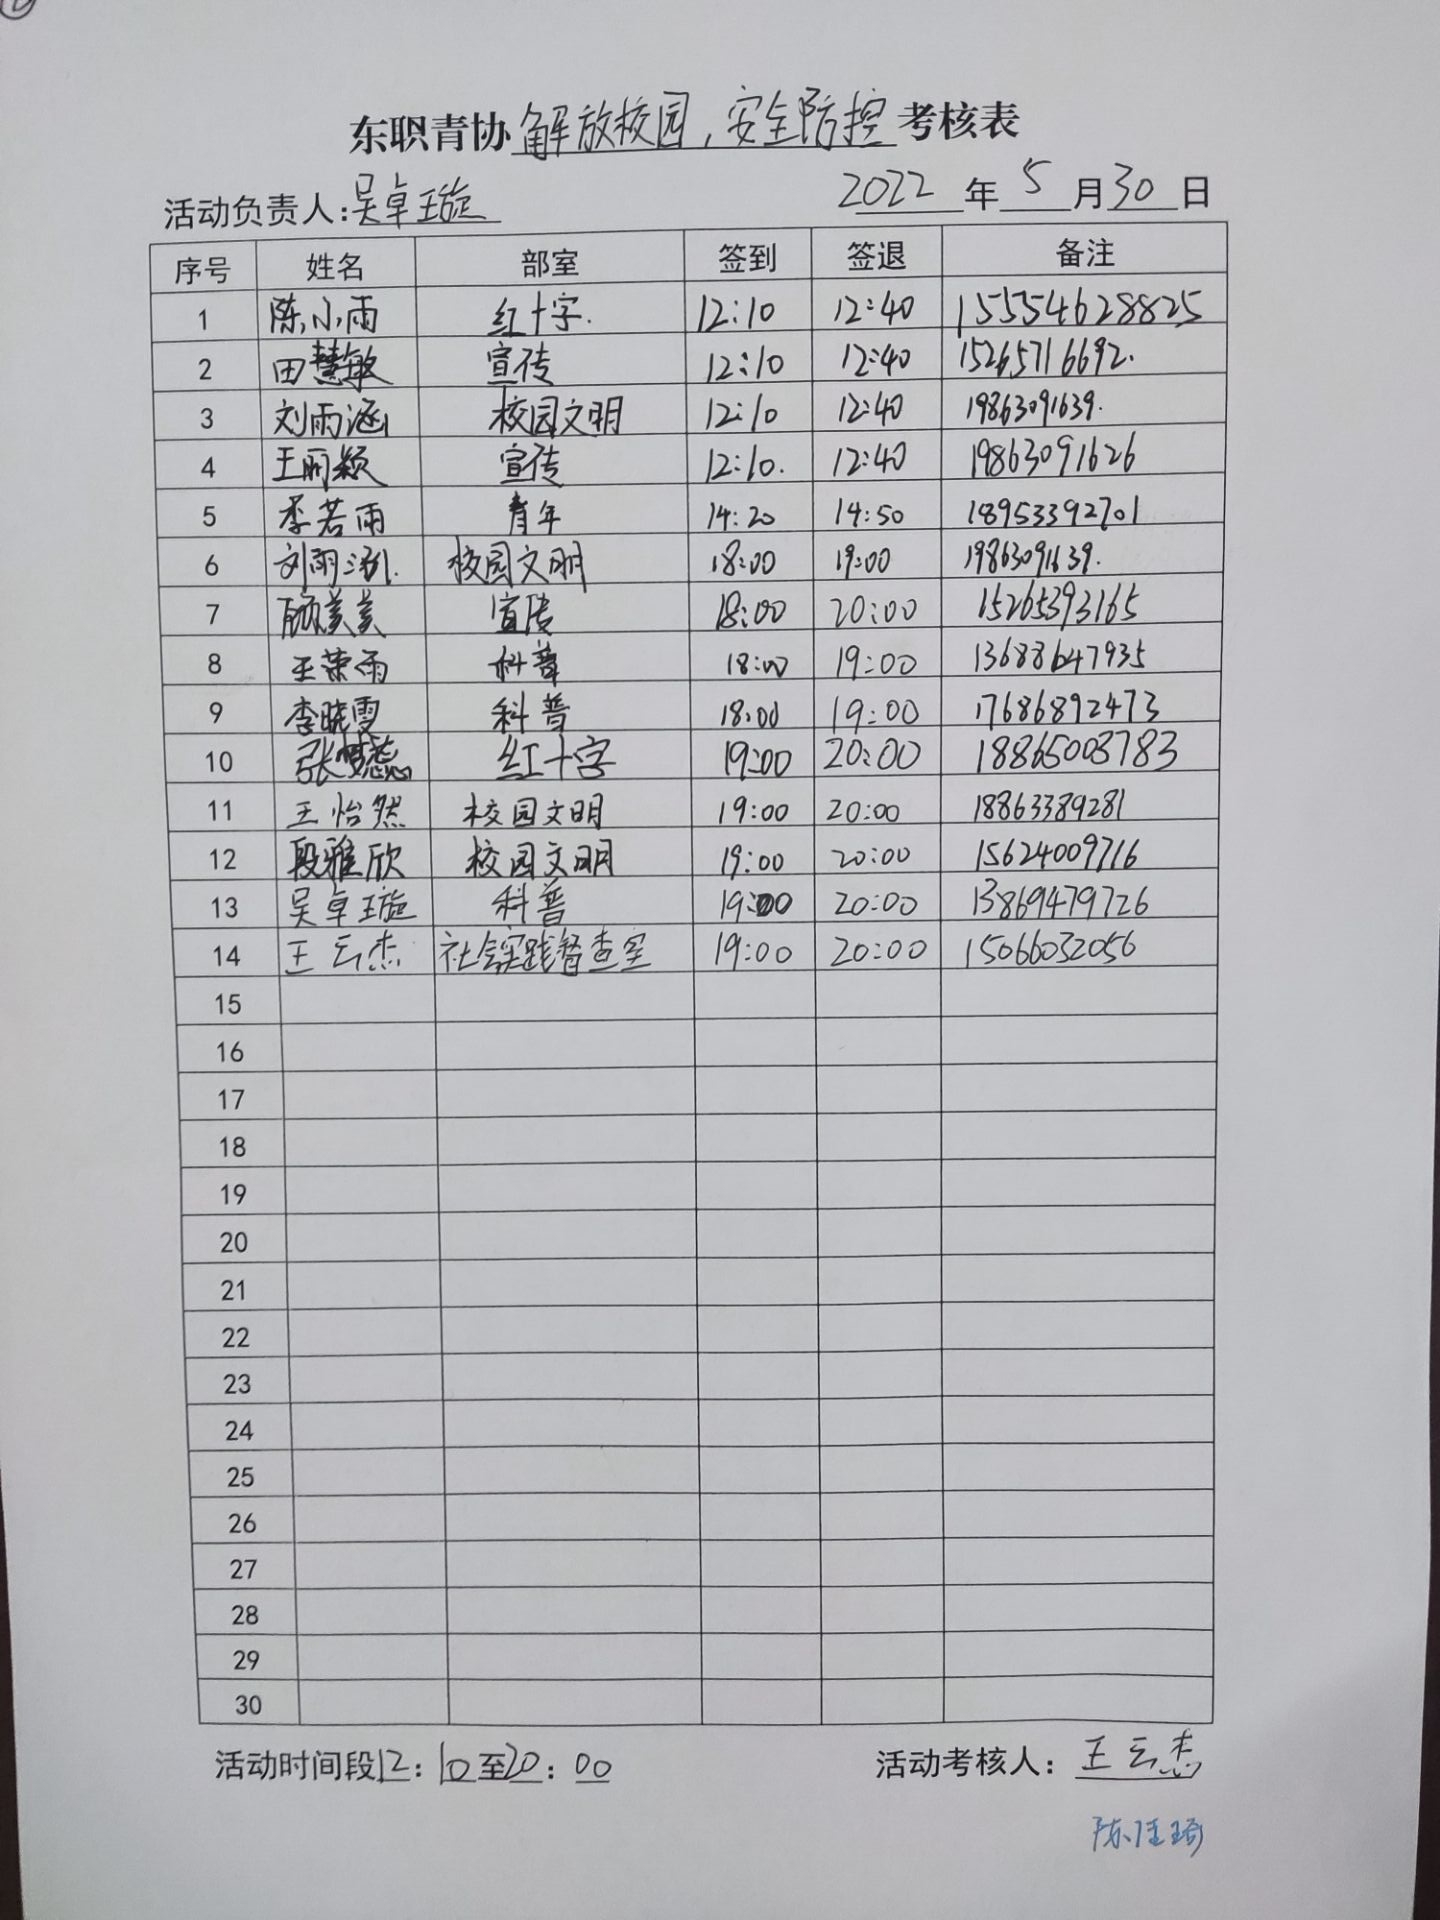 东职青协解放校园，安全防控考核表
活动负责人：吴卓璇 2022年5月30日
序号 姓名 部室 签到 签退 备注
1 陈小雨 红十字. 12:10 12:40 15554628825
2 田慧敏 宣传 12:10 12:40 15265716692.
3 刘雨涵 校园文明 12:10 12:40 19863091639.
4 王丽颖 宣传 12:10. 12:40 19863091626
5 李若雨 青年 14:20 14:50 18953392701
6 刘雨涵. 校园文明 18:00 19:00 19863091639.
7 顾美美 宣传 18:00 20:00 15265393165
8 王荣雨 科普 18:00 19:00 13688647935
9 李晓雯 科普 18:00 19:00 17686892473
10 张 红十字 19:00 20:00 18865003783
11 王怡然 校园文明 19:00 20:00 18863389281
12 段雅欣 校园文明 19:00 20:00 15624009716
13 吴卓璇 科普 19:00 20:00 13869479726
14 王云杰 社会实践督查室 19:00 20:00 15066032056
15
16
17
18
19
20
21
22
23
24
25
26
27
28
29
30
活动时间段12:10至20:00 活动考核人：王云杰
陈佳琦